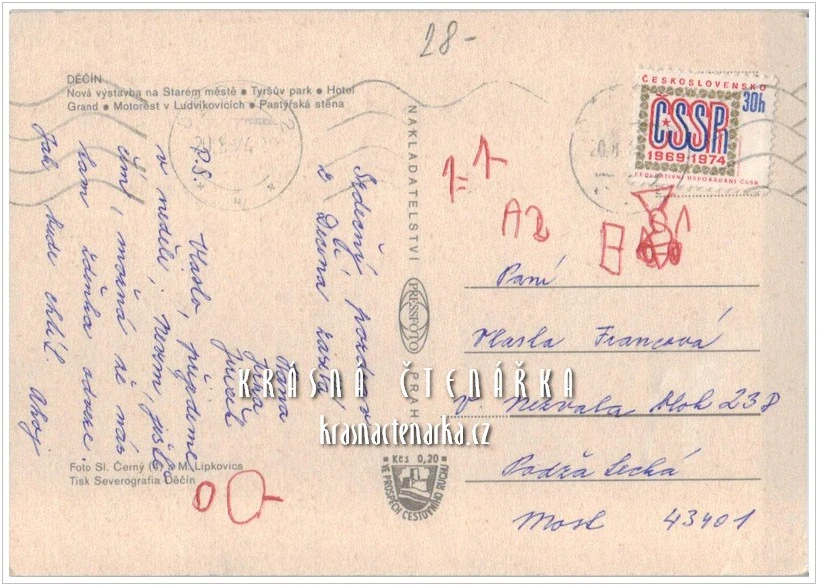 28-
DĚČÍN
Nová výstavba na Starém městě ● Tyršův park ● Hotel
Grand ● Motorest v Ludvíkovicích ● Pastýřská stěna
ČESKOSLOVENSKO
30h
ČSSR
1969-1974
FEDERATIVNÍ USPOŘÁDÁNÍ ČSSR
Srdečný pozdrav
z Děčína zasílá
Jirka
P.S.
Vlasto, přijdeme
v neděli. Nevím, ještě
čím, možná že nás
tam Zdenka odveze.
Jak bude chtít. Ahoj
NAKLADATELSTVÍ
PRESSFOTO
PRAHA
A2
Paní
Vlasta Francová
V. Nezvala blok 238
Most 43401
KRÁSNÁ ČTENÁŘKA
krasnactenarka.cz
Kčs 0,20
VE PROSPĚCH CESTOVNÍHO RUCHU
Foto Sl. Černý M. Lipkovics
Tisk Severografia Děčín